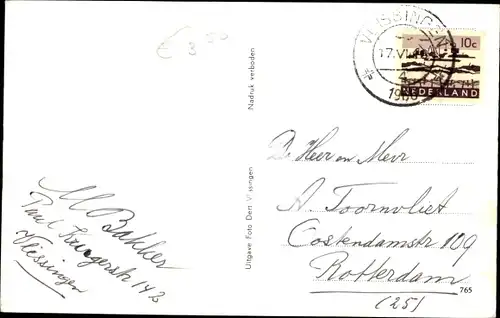 € 3 50
M Bakker
Paul Krugerstr 142
Vlissingen
Nadruk verboden
Uitgave Foto Dert Vlissingen
VLISSINGEN
17.VI
4
10c
NEDERLAND
De Heer en Mevr
A. Toornvliet
Oostendamstr 109
Rotterdam
(25)
765